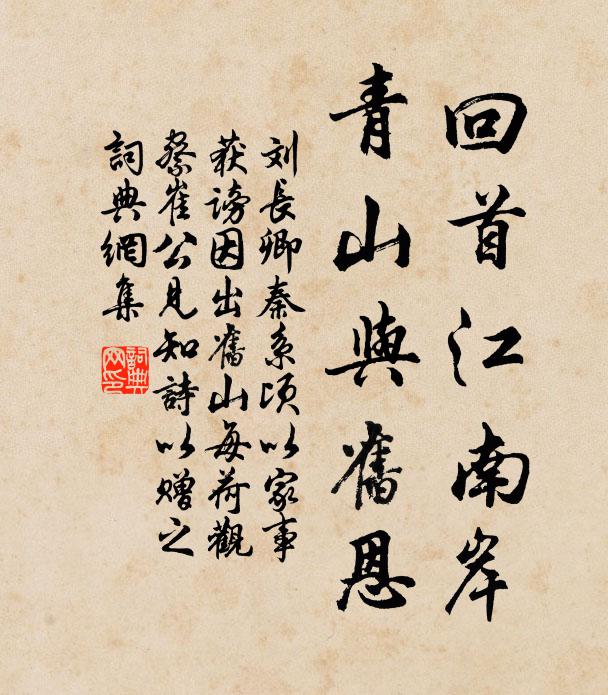 回首江南岸
青山與舊恩
刘長卿秦系頃以家事
获謗因出舊山每荷觀
察崔公見知詩以赠之
詞典網集
詞典
网印